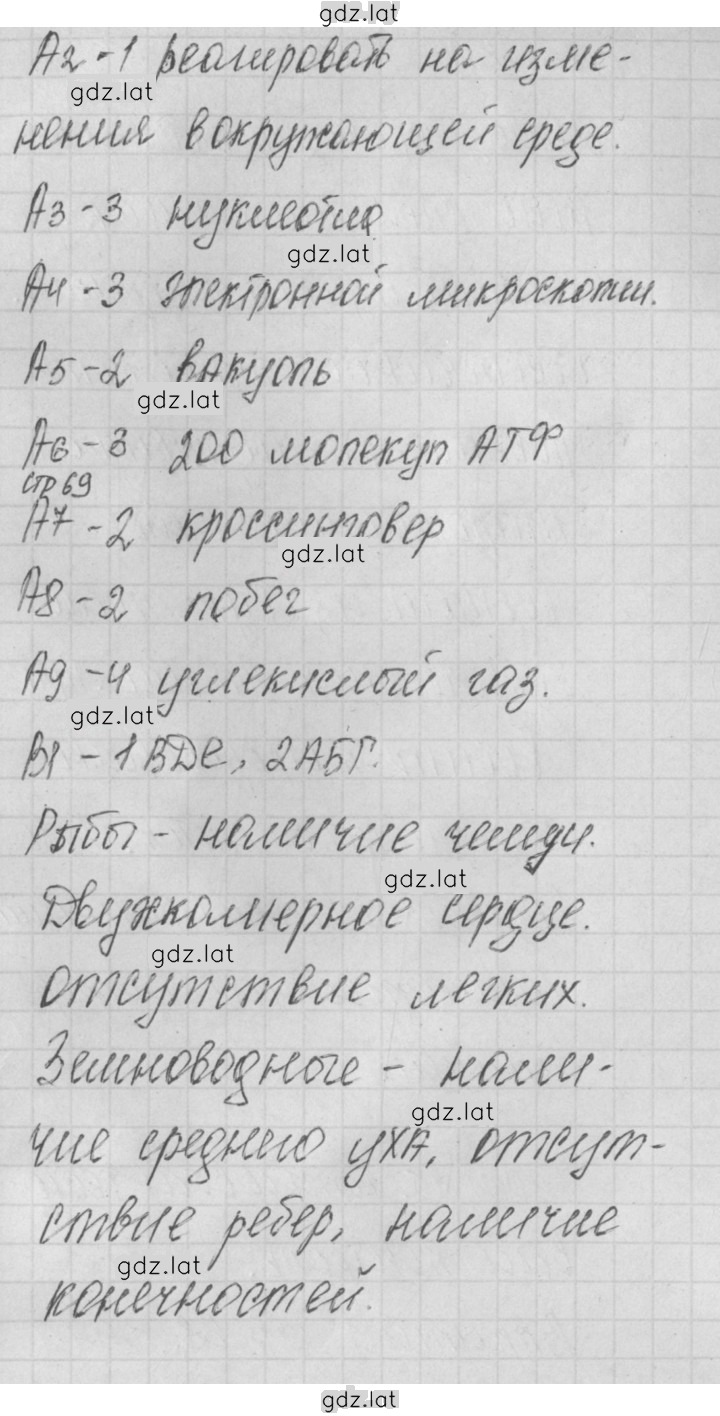 gdz.lat
А2-1 реагировать на изме-
gdz.lat
нения в окружающей среде.
А3-3 нуклеотид
gdz.lat
А4-3 электронной микроскопии.
А5-2 вакуоль
gdz.lat
А6-3 200 молекул АТФ
стр 69
А7-2 кроссинговер
gdz.lat
А8-2 побег
А9-4 углекислый газ.
gdz.lat
В1-1ВДЕ, 2АБГ.
Рыбы - наличие чешуи.
gdz.lat
Двухкамерное сердце.
gdz.lat
отсутствие легких.
Земноводные - нали-
gdz.lat
чие среднего уха, отсут-
ствие ребер, наличие
gdz.lat
конечностей.
gdz.lat